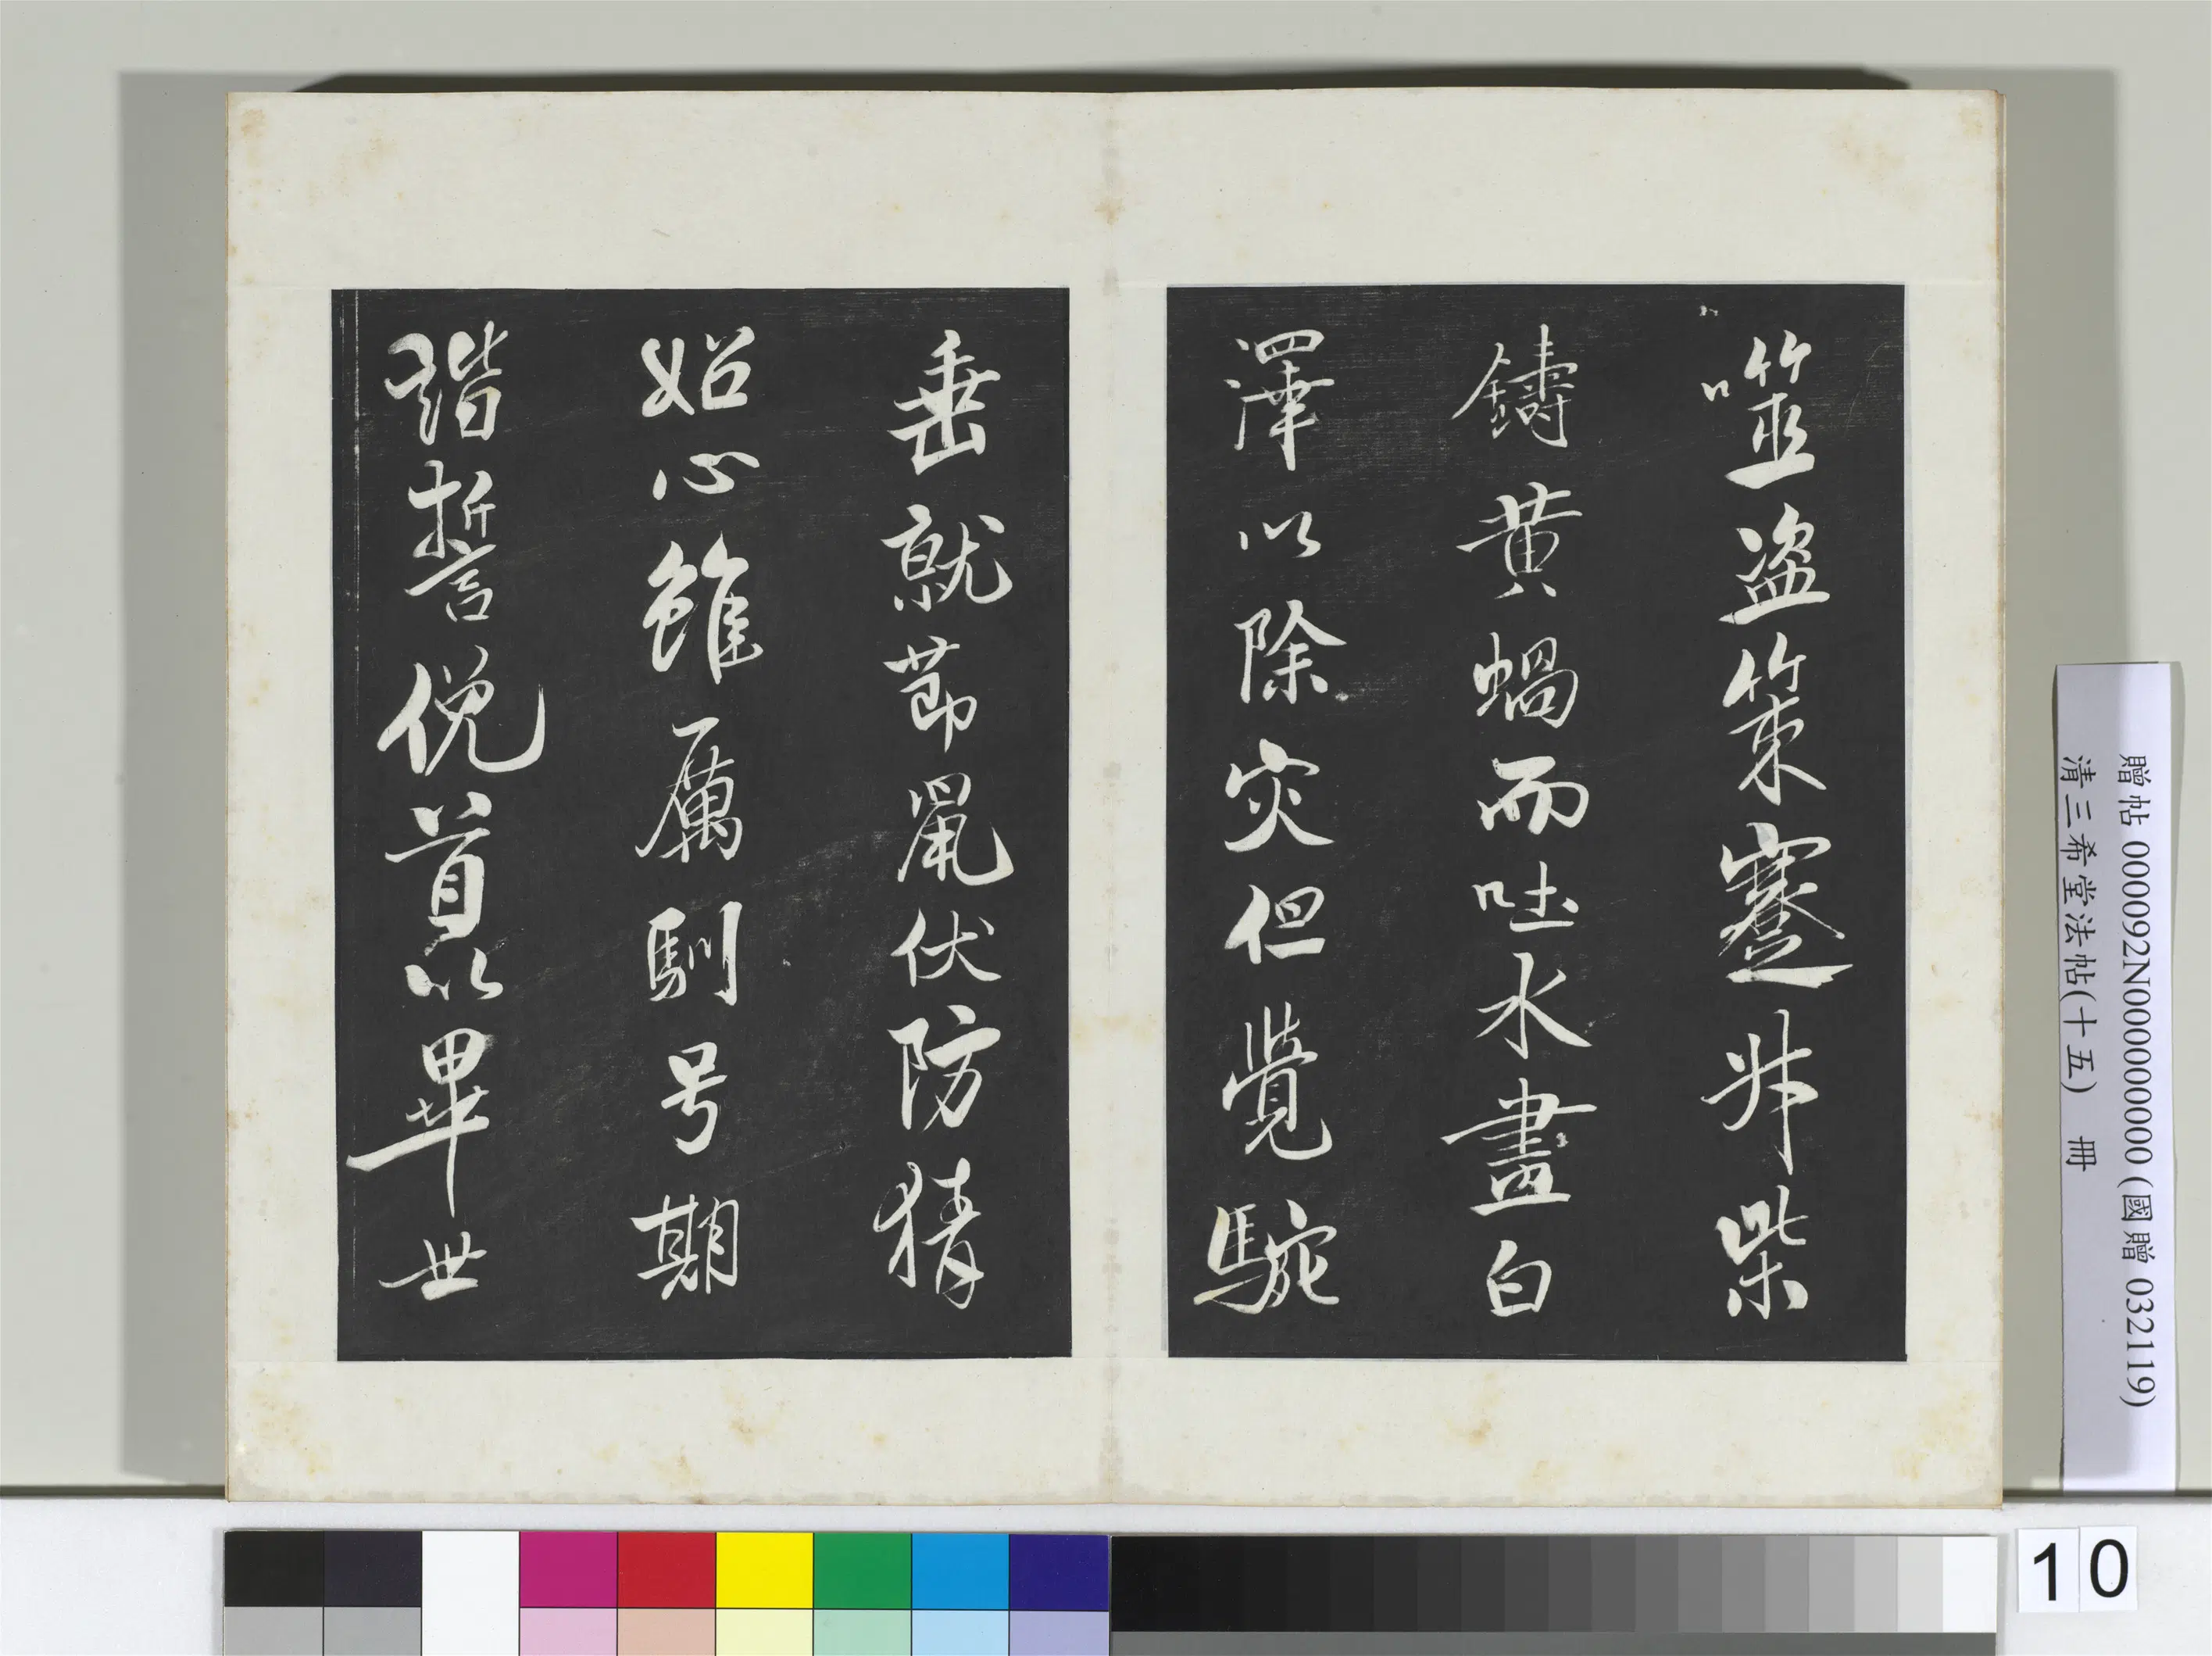 噬盗策蹇升柴
鑄黄蝸而吐水畫白
澤以除灾但覺駝
垂就節鼠伏防猜
妬心雖厲馴号期
諧誓俛首以畢世
贈帖 000092N000000000 (國贈 032119)
清三希堂法帖(十五) 冊
10